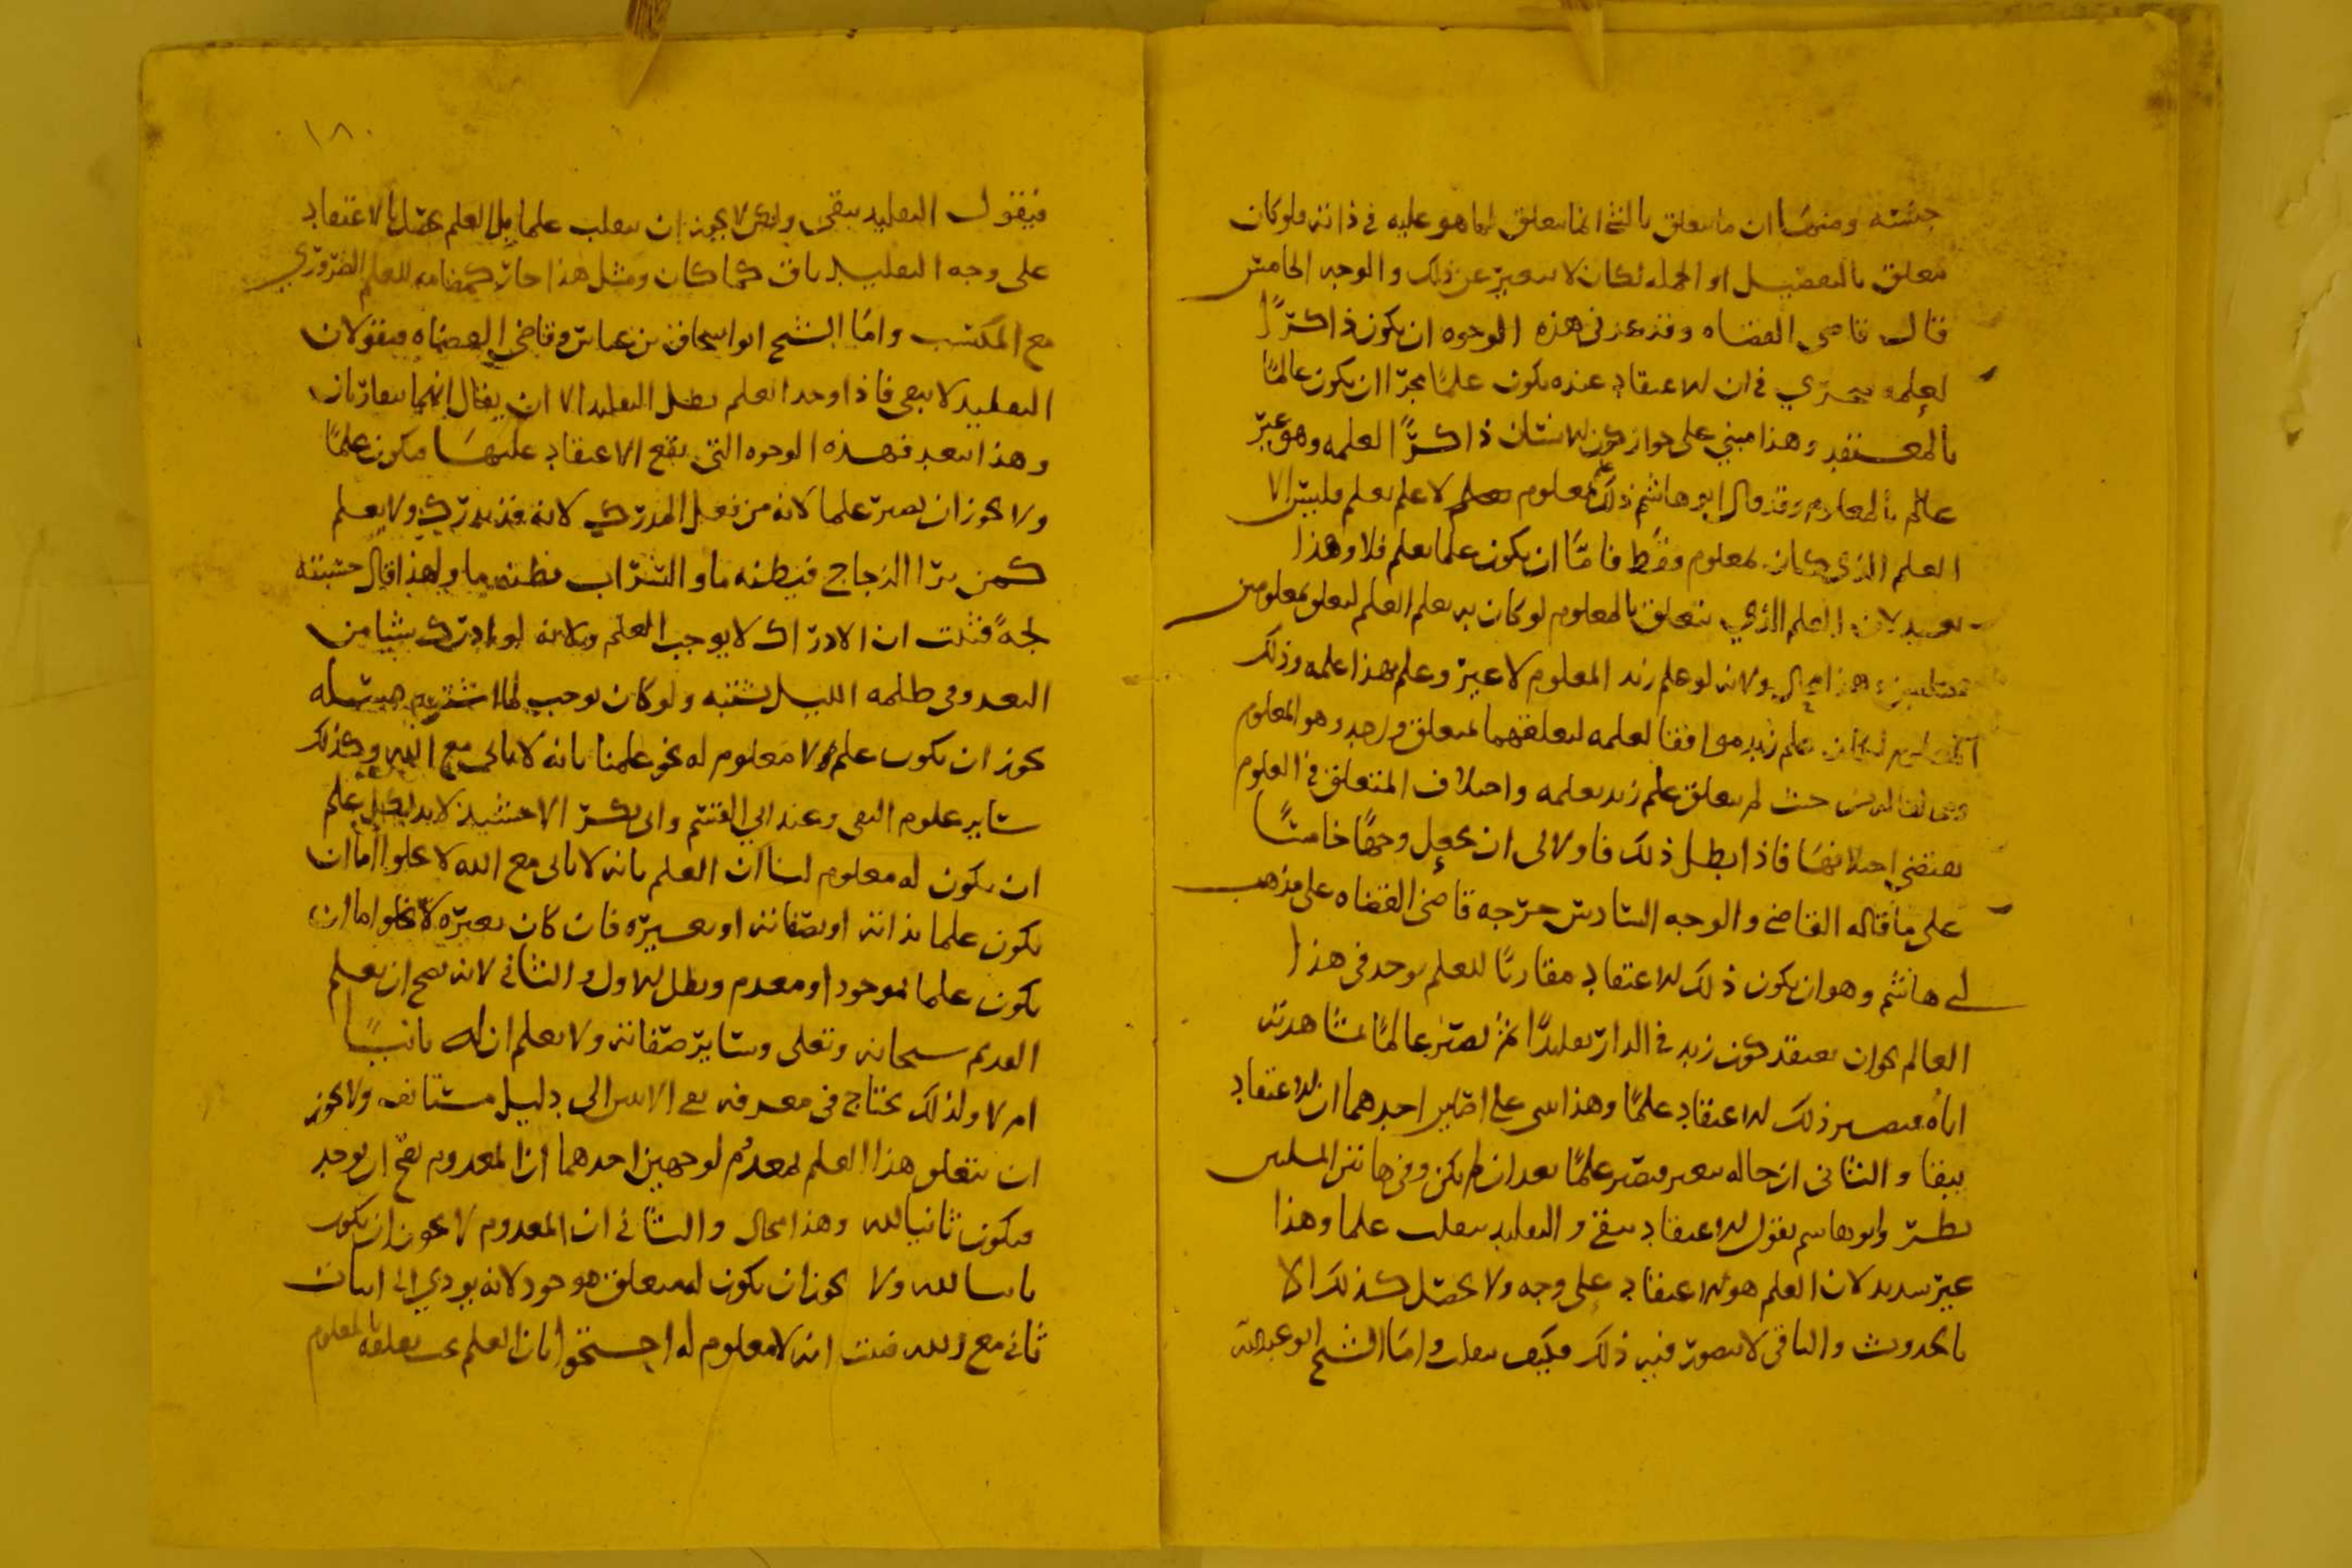 جنسه ومنها ان ما يتعلق بالشي انما يتعلق لما هو عليه في ذاته فلو كان
يتعلق بالتفصيل او الجمله لكان لا يتغير عن ذلك والوجه الخامس
قال قاضى القضاه وقد عد في هذه الوجوه ان يكون ذاكرًا
لعلمه فيجري في ان الاعتقاد عنده يكون علمًا مجرا ان يكون عالمًا
بالمعتقد وهذا مبني على جواز كون الانسان ذاكرًا لعلمه وهو غير
عالم بالمعلوم وقد قال ابو هاشم ذلك لمعلوم تعلم لا علم بعلم فليس الا
العلم الذي كان لمعلوم فقط فامّا ان يكون علما بعلم فلا وهذا
بعيد لان العلم الذي يتعلق بالمعلوم لو كان به يعلم العلم لتعلق بمعلومين
وهذا محال ولانه لو علم زيد المعلوم لا غير وعلم هذا علمه وذلك
المعلوم لكان علم زيد موافقا لعلمه لتعلقهما بمتعلق واحد وهو المعلوم
من حيث لم يتعلق علم زيد بعلمه واختلاف المتعلق في العلوم
يقتضي اختلافها فاذا بطل ذلك فاولالى ان يجعل وجهًا خامسًا
على ما قاله القاضي والوجه السادس خرّجه قاضي القضاه على مذهب
ابي هاشم وهو ان يكون ذلك الاعتقاد مقارنًا للعلم يوجد في هذا
العالم نحو ان يعتقد كون زيد في الدار تقليدًا ثم يصير عالمًا بمشاهدته
اياه فيصير ذلك الاعتقاد علمًا وهذا بني على اصلين احدهما ان الاعتقاد
يبقا والثاني ان حاله يتغير فيصير علمًا بعد ان لم يكن وفي هاتين المسلتين
نظر وابو هاشم يقول الاعتقاد يبقى والتقليد ينقلب علما وهذا
غير سديد لان العلم هو الاعتقاد على وجه ولا يحصل كذلك الا
بالحدوث والباقي لا يتصور فيه ذلك فكيف ينقلب وامّا الشيخ ابو عبدالله
١٨٠
فيقول التقليد يبقى ولكن لا يجوز ان ينقلب علما بل العلم يحصل بالاعتقاد
على وجه التقليد باق كما كان ومثل هذا جائز كمضامه للعلم الضروري
مع المكتسب وامّا الشيخ ابو اسحاق بن عياش وقاضي القضاه فيقولان
التقليد لا يبقى فاذا وجد العلم بطل التقليد الا ان يقال انهما يتقارنان
وهذا يبعد فهذه الوجوه التي يقع الاعتقاد عليها فيكون علمًا
ولا يجوز ان يصير علما لانه من فعل المدرك لانه قد يدرك ولا يعلم
كمن يرا الزجاج فيظنه ما والشراب فظنه ما ولهذا قال حسبته
لجةً فثبت ان الادراك لا يوجب العلم ولانه لو ادرك شيا من
البعد وفي ظلمه الليل لشبه ولو كان يوجب لما اشتبه مسئله
يجوز ان يكون علم ولا معلوم له نحو علمنا بانه لا ثاني مع الله وكذلك
سائر علوم النفي وعند ابي القسم وابي بكر الاخشيد لا بد لكل علم
ان يكون له معلوم لنا ان العلم بانه لا ثاني مع الله لا يخلوا اما ان
يكون علما بذاته او بصفاته او بغيره فان كان بغيره لا يخلوا اما ان
يكون علما بموجود او معدم وبطل الاول والثاني لانه يصح ان يعلم
القديم سبحانه وتعلى وسائر صفاته ولا يعلم ان له ثانيًا
ام لا ولذلك يحتاج في معرفه نفي الاثنين الى دليل مستانف ولا يجوز
ان يتعلق هذا العلم لمعدم لوجهين احدهما ان المعدوم يصح ان يوجد
فيكون ثانيا لله وهذا محال والثاني ان المعدوم لا يجوز ان يكون
ثانيا لله ولا يجوز ان يكون له متعلق موجود لانه يودي الى اثبات
ثاني مع الله فثبت انه لا معلوم له احتجوا بان العلم يجب تعلقه بالمعلوم